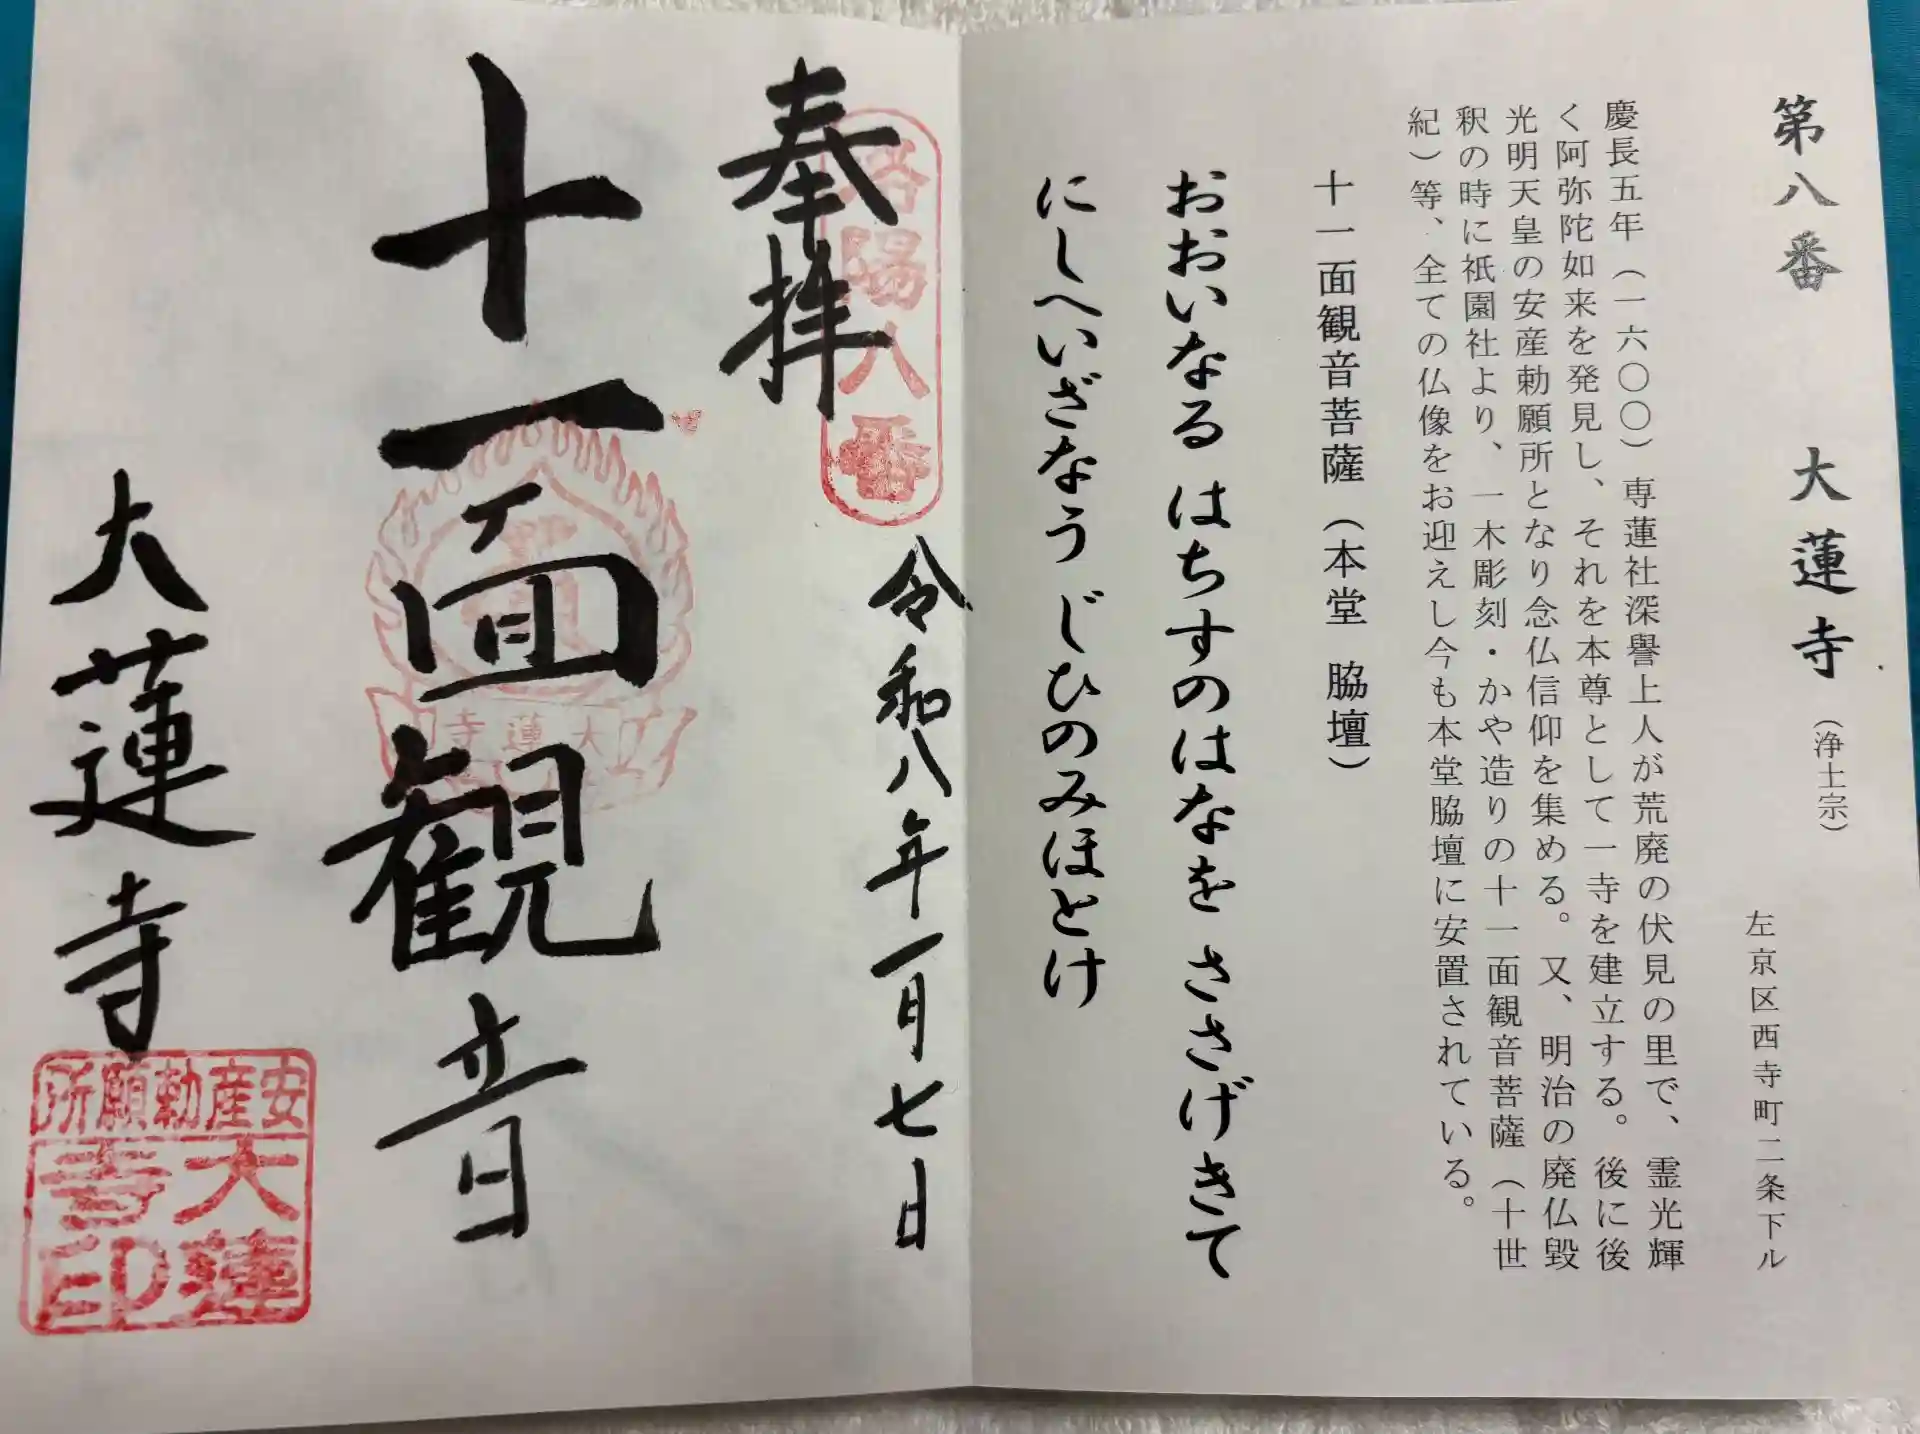 第八番　大蓮寺（浄土宗）
左京区西寺町二条下ル
慶長五年（一六〇〇）専蓮社深譽上人が荒廃の伏見の里で、霊光輝
く阿弥陀如来を発見し、それを本尊として一寺を建立する。後に後
光明天皇の安産勅願所となり念仏信仰を集める。又、明治の廃仏毀
釈の時に祇園社より、一木彫刻・かや造りの十一面観音菩薩（十世
紀）等、全ての仏像をお迎えし今も本堂脇壇に安置されている。
十一面観音菩薩（本堂 脇壇）
おおいなる はちすのはなを ささげきて
にしへいざなう じひのみほとけ
洛陽八番
奉拝
令和八年一月七日
十一面観音
大蓮寺
大蓮寺
安産勅願所
大蓮
寺印